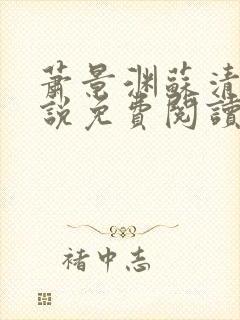 蕭景渊蘇清
說免費閱讀
褚中志